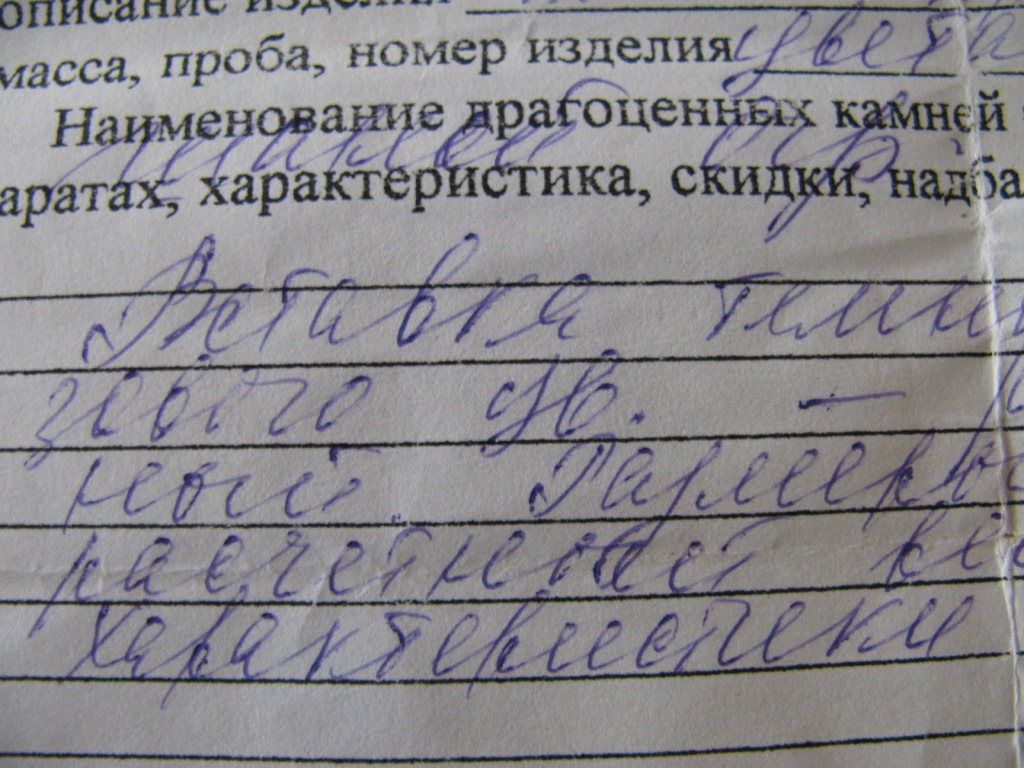 описание изделия
масса, проба, номер изделия цвета
Наименование драгоценных камней
аратах, характеристика, скидки, надба
Вставка темн
зового цв. —
ный. Размеры
расчетный вес
характеристики